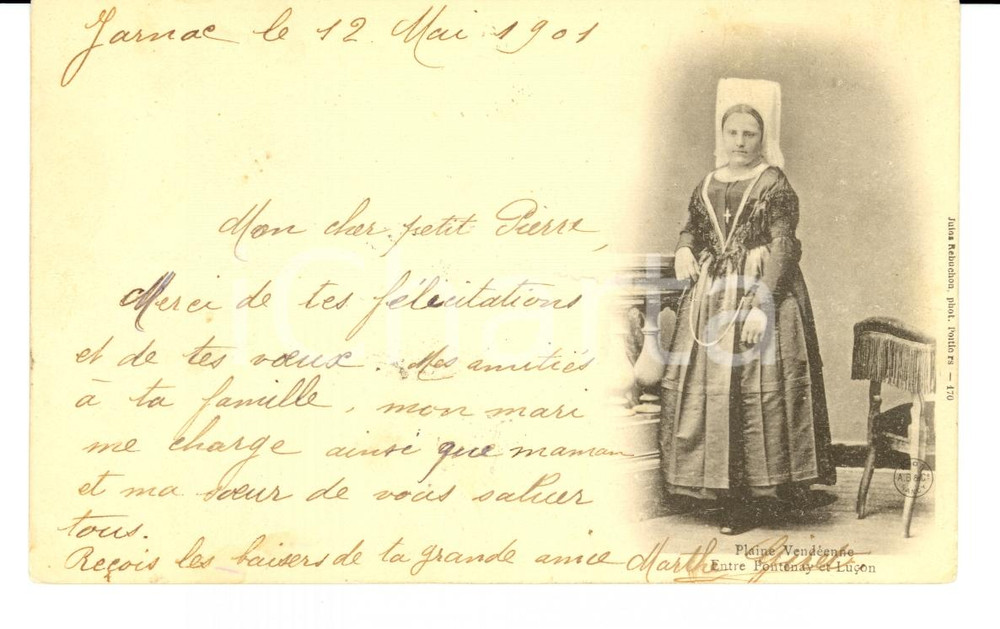 Jarnac le 12 Mai 1901
Mon cher petit Pierre,
Merci de tes félicitations
et de tes vœux. Mes amitiés
à ta famille, mon mari
me charge ainsi que maman
et ma sœur de vous saluer
tous.
Reçois les baisers de ta grande amie Marthe
Plaine Vendéenne
Entre Fontenay et Luçon
Jules Robuchon, phot. Poitiers — 170
iCharta